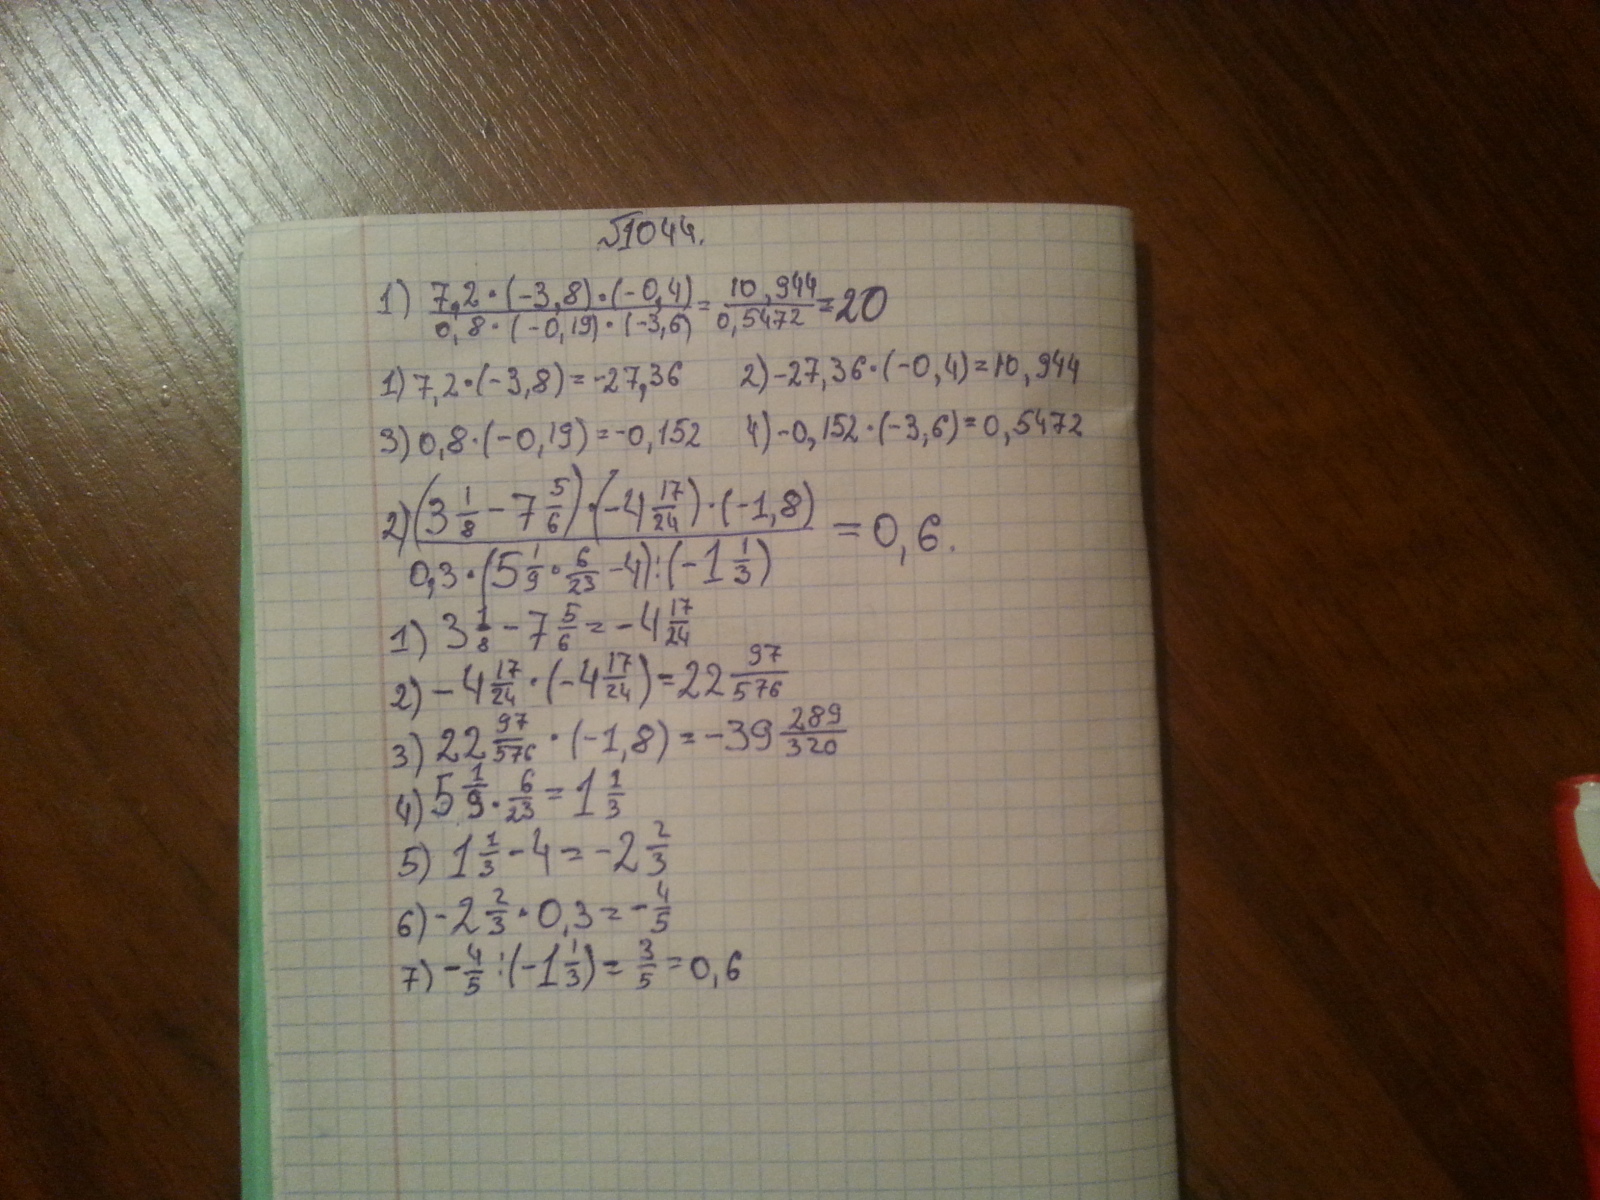 №1044.
1) 7,2·(-3,8)·(-0,4)/0,8·(-0,19)·(-3,6) = 10,944/0,5472 = 20
1) 7,2·(-3,8)=-27,36 2) -27,36·(-0,4)=10,944
3) 0,8·(-0,19)=-0,152 4) -0,152·(-3,6)=0,5472
2) (3 1/8 - 7 5/6)·(-4 17/24)·(-1,8)/0,3·(5 1/9 · 6/23 - 4):(-1 1/3) = 0,6.
1) 3 1/8 - 7 5/6 = -4 17/24
2) -4 17/24 · (-4 17/24) = 22 97/576
3) 22 97/576 · (-1,8) = -39 289/320
4) 5 1/9 · 6/23 = 1 1/3
5) 1 1/3 - 4 = -2 2/3
6) -2 2/3 · 0,3 = -4/5
7) -4/5 : (-1 1/3) = 3/5 = 0,6